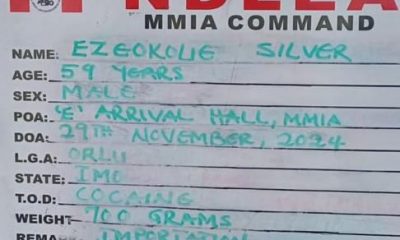 NDLEA
MMIA COMMAND
NAME: EZEOKOLIE SILVER
AGE: 59 YEARS
SEX: MALE
POA: 'E' ARRIVAL HALL, MMIA
DOA: 29TH NOVEMBER, 2024
L.G.A: ORLU
STATE: IMO
T.O.D: COCAINE
WEIGHT- 700 GRAMS
REMARK IMPORTATION